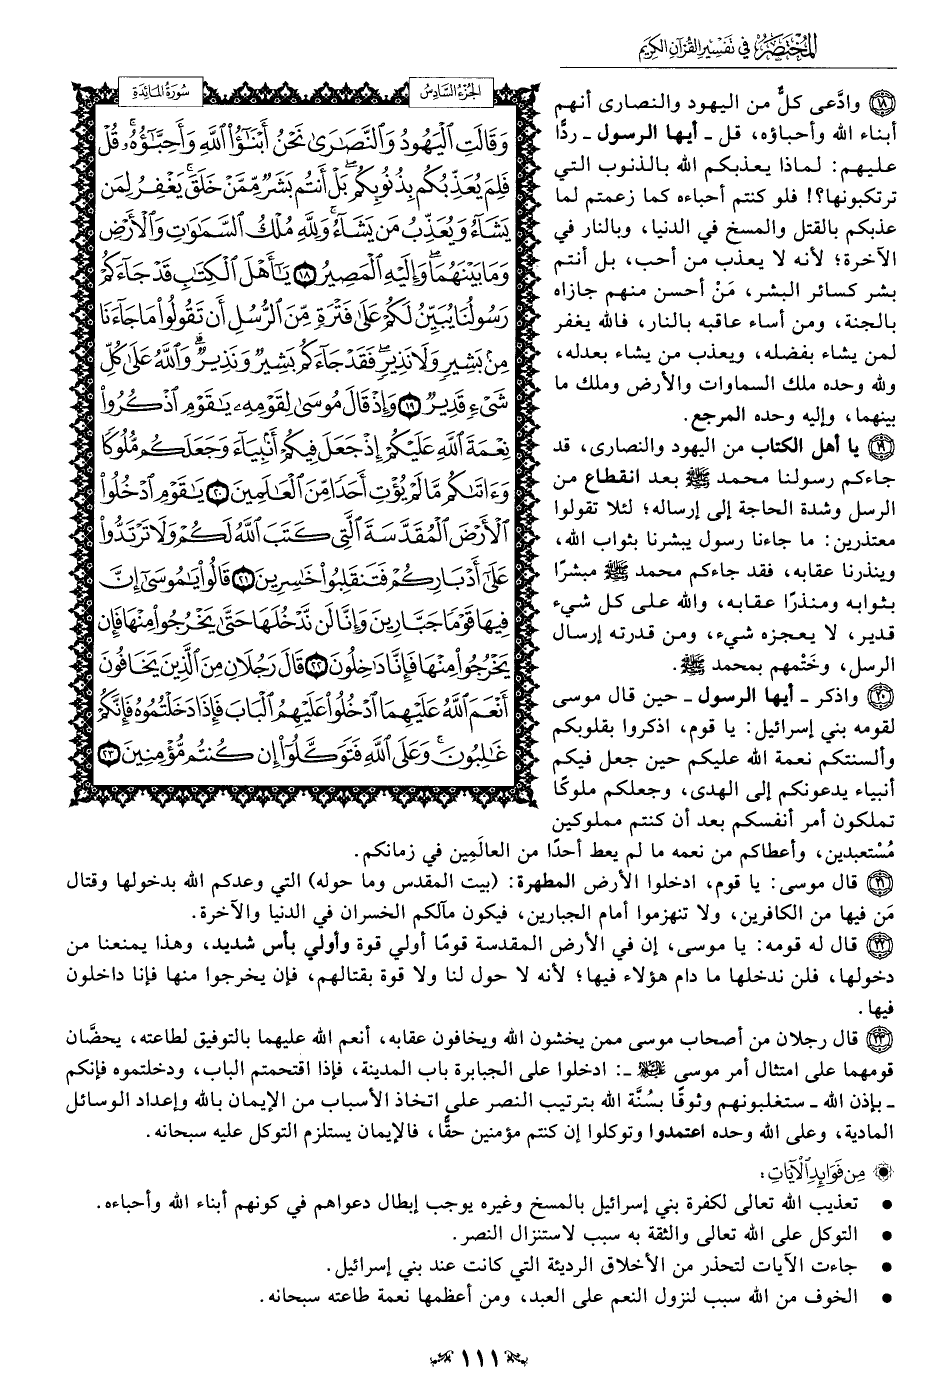 المختصر في تفسير القرآن الكريم
الجزء السادس
سورة المائدة
وَقَالَتِ ٱلْيَهُودُ وَٱلنَّصَٰرَىٰ نَحْنُ أَبْنَٰٓؤُا۟ ٱللَّهِ وَأَحِبَّٰٓؤُهُۥ ۚ قُلْ
فَلِمَ يُعَذِّبُكُم بِذُنُوبِكُم ۖ بَلْ أَنتُم بَشَرٌ مِّمَّنْ خَلَقَ ۚ يَغْفِرُ لِمَن
يَشَآءُ وَيُعَذِّبُ مَن يَشَآءُ ۚ وَلِلَّهِ مُلْكُ ٱلسَّمَٰوَٰتِ وَٱلْأَرْضِ
وَمَا بَيْنَهُمَا ۖ وَإِلَيْهِ ٱلْمَصِيرُ ١٨ يَٰٓأَهْلَ ٱلْكِتَٰبِ قَدْ جَآءَكُمْ
رَسُولُنَا يُبَيِّنُ لَكُمْ عَلَىٰ فَتْرَةٍ مِّنَ ٱلرُّسُلِ أَن تَقُولُوا۟ مَا جَآءَنَا
مِنۢ بَشِيرٍ وَلَا نَذِيرٍ ۖ فَقَدْ جَآءَكُم بَشِيرٌ وَنَذِيرٌ ۗ وَٱللَّهُ عَلَىٰ كُلِّ
شَىْءٍ قَدِيرٌ ١٩ وَإِذْ قَالَ مُوسَىٰ لِقَوْمِهِۦ يَٰقَوْمِ ٱذْكُرُوا۟
نِعْمَةَ ٱللَّهِ عَلَيْكُمْ إِذْ جَعَلَ فِيكُمْ أَنۢبِيَآءَ وَجَعَلَكُم مُّلُوكًا
وَءَاتَىٰكُم مَّا لَمْ يُؤْتِ أَحَدًا مِّنَ ٱلْعَٰلَمِينَ ٢٠ يَٰقَوْمِ ٱدْخُلُوا۟
ٱلْأَرْضَ ٱلْمُقَدَّسَةَ ٱلَّتِى كَتَبَ ٱللَّهُ لَكُمْ وَلَا تَرْتَدُّوا۟
عَلَىٰٓ أَدْبَارِكُمْ فَتَنقَلِبُوا۟ خَٰسِرِينَ ٢١ قَالُوا۟ يَٰمُوسَىٰٓ إِنَّ
فِيهَا قَوْمًا جَبَّارِينَ وَإِنَّا لَن نَّدْخُلَهَا حَتَّىٰ يَخْرُجُوا۟ مِنْهَا فَإِن
يَخْرُجُوا۟ مِنْهَا فَإِنَّا دَٰخِلُونَ ٢٢ قَالَ رَجُلَانِ مِنَ ٱلَّذِينَ يَخَافُونَ
أَنْعَمَ ٱللَّهُ عَلَيْهِمَا ٱدْخُلُوا۟ عَلَيْهِمُ ٱلْبَابَ فَإِذَا دَخَلْتُمُوهُ فَإِنَّكُمْ
غَٰلِبُونَ ۚ وَعَلَى ٱللَّهِ فَتَوَكَّلُوٓا۟ إِن كُنتُم مُّؤْمِنِينَ ٢٣
١٨ وادَّعى كلٌّ من اليهود والنصارى أنهم
أبناء الله وأحباؤه، قل ـ أيها الرسول ـ ردًّا
عليهم: لماذا يعذبكم الله بالذنوب التي
ترتكبونها؟! فلو كنتم أحباءه كما زعمتم لما
عذبكم بالقتل والمسخ في الدنيا، وبالنار في
الآخرة؛ لأنه لا يعذب من أحب، بل أنتم
بشر كسائر البشر، مَنْ أحسن منهم جازاه
بالجنة، ومن أساء عاقبه بالنار، فالله يغفر
لمن يشاء بفضله، ويعذب من يشاء بعدله،
ولله وحده ملك السماوات والأرض وملك ما
بينهما، وإليه وحده المرجع.
١٩ يا أهل الكتاب من اليهود والنصارى، قد
جاءكم رسولنا محمد ﷺ بعد انقطاع من
الرسل وشدة الحاجة إلى إرساله؛ لئلا تقولوا
معتذرين: ما جاءنا رسول يبشرنا بثواب الله،
وينذرنا عقابه، فقد جاءكم محمد ﷺ مبشرًا
بثوابه ومنذرًا عقابه، والله على كل شيء
قدير، لا يعجزه شيء، ومن قدرته إرسال
الرسل، وخَتْمهم بمحمد ﷺ.
٢٠ واذكر ـ أيها الرسول ـ حين قال موسى
لقومه بني إسرائيل: يا قوم، اذكروا بقلوبكم
وألسنتكم نعمة الله عليكم حين جعل فيكم
أنبياء يدعونكم إلى الهدى، وجعلكم ملوكًا
تملكون أمر أنفسكم بعد أن كنتم مملوكين
مُسْتعبدين، وأعطاكم من نعمه ما لم يعط أحدًا من العالَمِين في زمانكم.
٢١ قال موسى: يا قوم، ادخلوا الأرض المطهرة: (بيت المقدس وما حوله) التي وعدكم الله بدخولها وقتال
مَن فيها من الكافرين، ولا تنهزموا أمام الجبارين، فيكون مآلكم الخسران في الدنيا والآخرة.
٢٢ قال له قومه: يا موسى، إن في الأرض المقدسة قومًا أولي قوة وأولي بأس شديد، وهذا يمنعنا من
دخولها، فلن ندخلها ما دام هؤلاء فيها؛ لأنه لا حول لنا ولا قوة بقتالهم، فإن يخرجوا منها فإنا داخلون
فيها.
٢٣ قال رجلان من أصحاب موسى ممن يخشون الله ويخافون عقابه، أنعم الله عليهما بالتوفيق لطاعته، يحضَّان
قومهما على امتثال أمر موسى عليه السلام ـ: ادخلوا على الجبابرة باب المدينة، فإذا اقتحمتم الباب، ودخلتموه فإنكم
ـ بإذن الله ـ ستغلبونهم وثوقًا بسُنَّة الله بترتيب النصر على اتخاذ الأسباب من الإيمان بالله وإعداد الوسائل
المادية، وعلى الله وحده اعتمدوا وتوكلوا إن كنتم مؤمنين حقًّا، فالإيمان يستلزم التوكل عليه سبحانه.
من فوائد الآيات:
• تعذيب الله تعالى لكفرة بني إسرائيل بالمسخ وغيره يوجب إبطال دعواهم في كونهم أبناء الله وأحباءه.
• التوكل على الله تعالى والثقة به سبب لاستنزال النصر.
• جاءت الآيات لتحذر من الأخلاق الرديئة التي كانت عند بني إسرائيل.
• الخوف من الله سبب لنزول النعم على العبد، ومن أعظمها نعمة طاعته سبحانه.
١١١